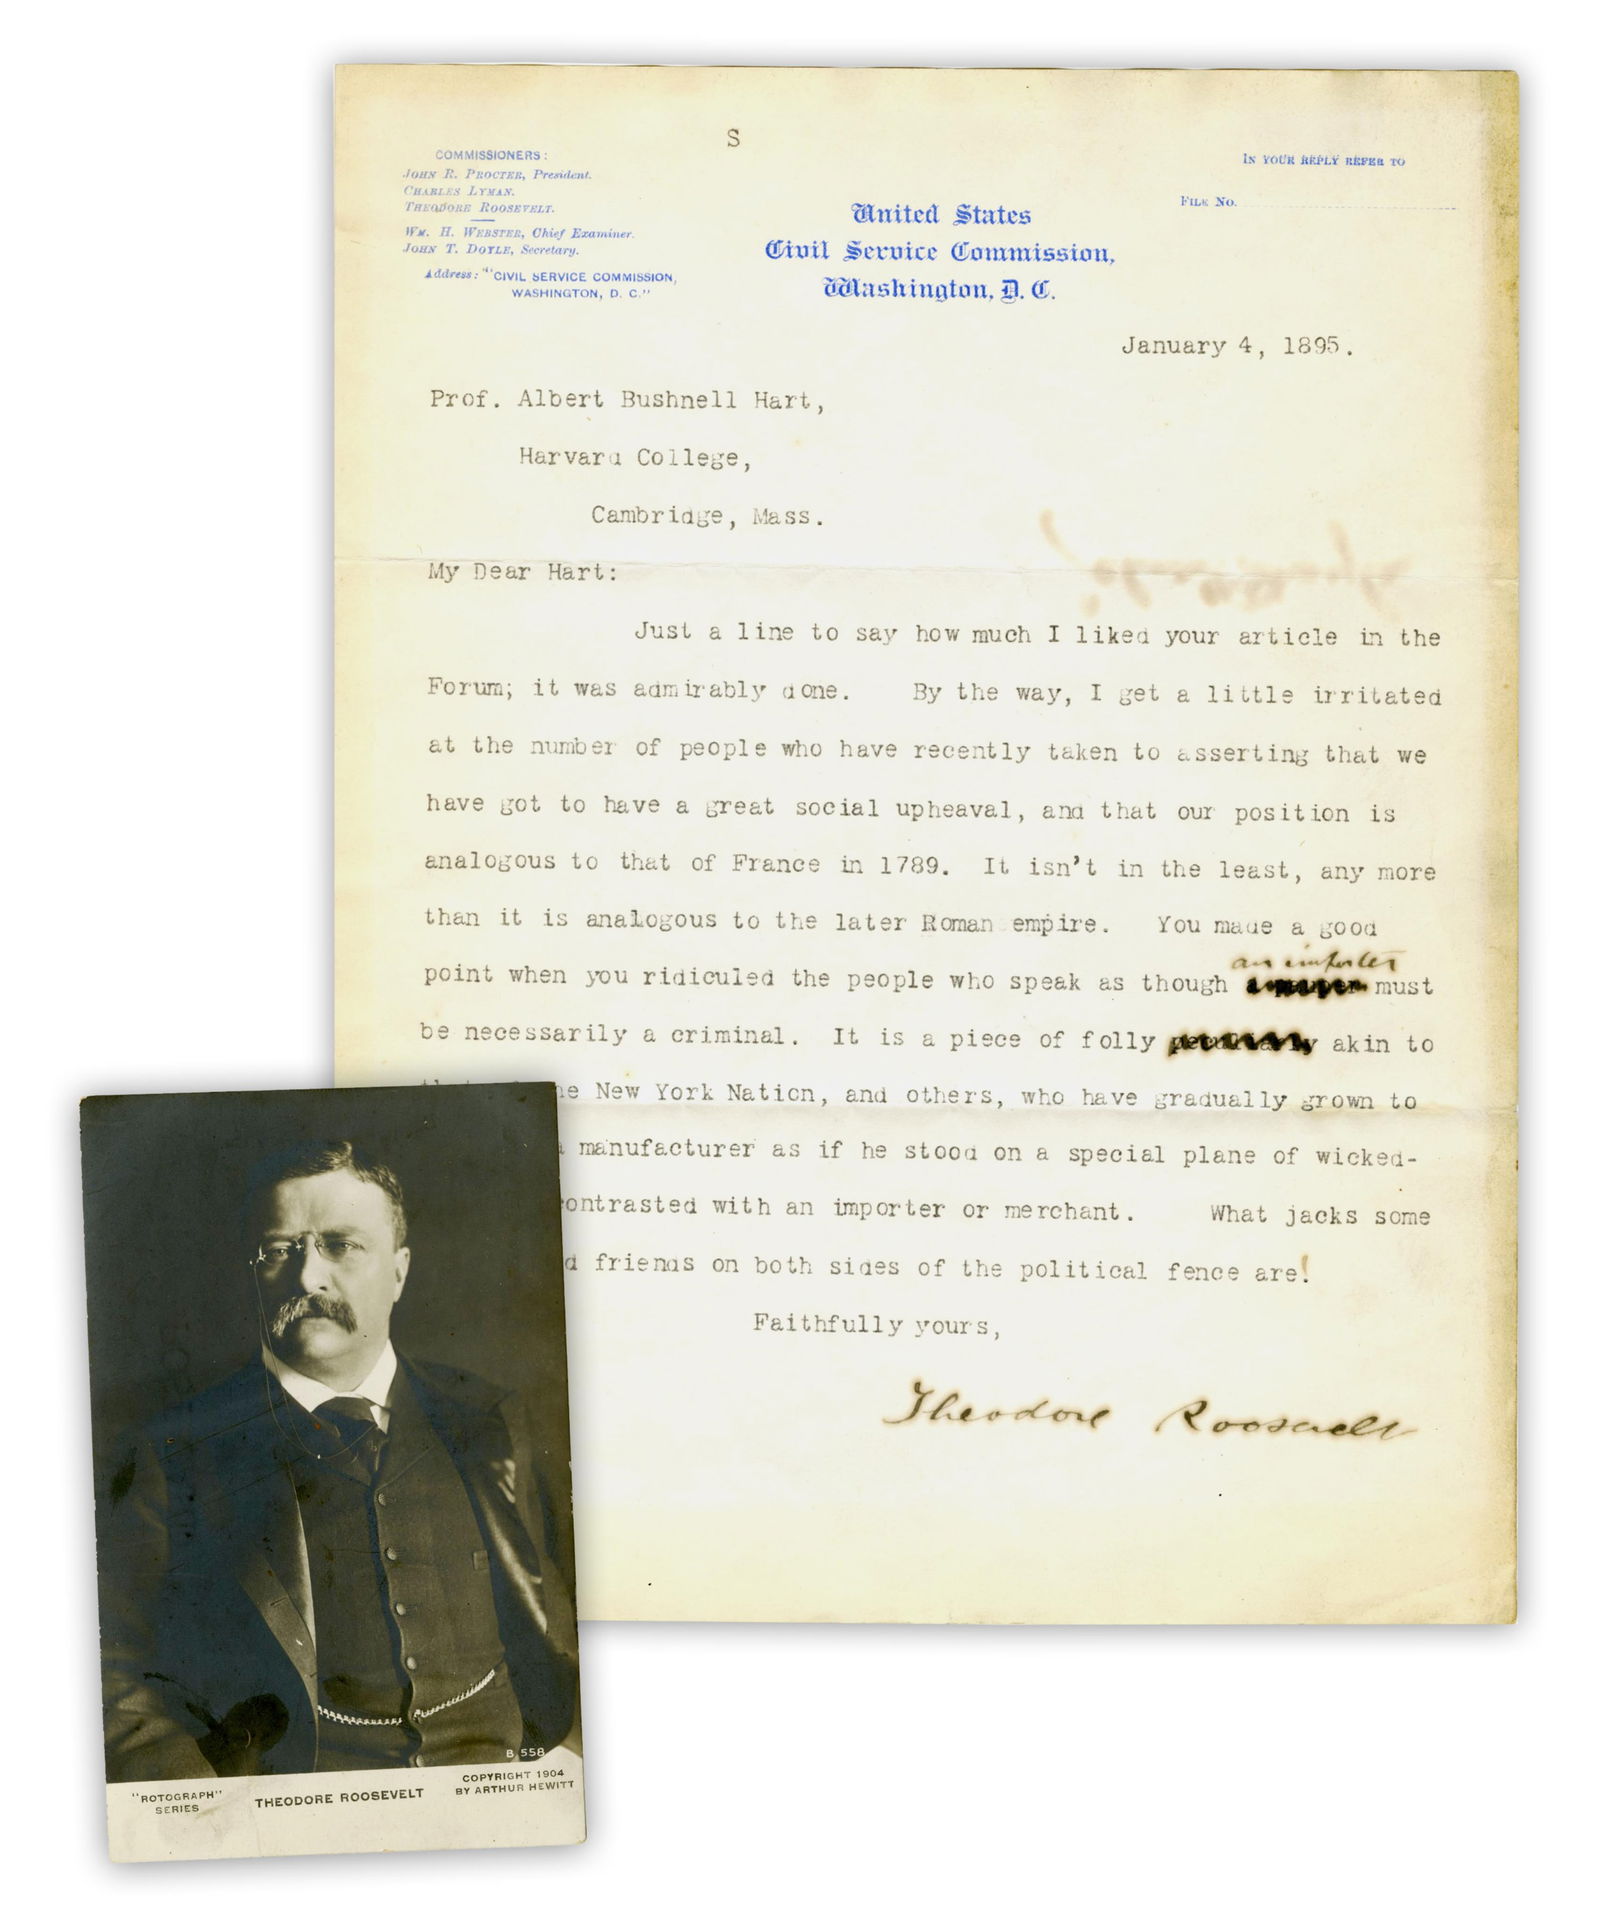 S
COMMISSIONERS:
JOHN R. PROCTER, President.
CHARLES LYMAN.
THEODORE ROOSEVELT.
WM. H. WEBSTER, Chief Examiner.
JOHN T. DOYLE, Secretary.
Address: "CIVIL SERVICE COMMISSION,
WASHINGTON, D. C."
United States
Civil Service Commission,
Washington, D. C.
IN YOUR REPLY REFER TO
FILE NO.
January 4, 1895.
Prof. Albert Bushnell Hart,
Harvard College,
Cambridge, Mass.
My Dear Hart:
Just a line to say how much I liked your article in the
Forum; it was admirably done. By the way, I get a little irritated
at the number of people who have recently taken to asserting that we
have got to have a great social upheaval, and that our position is
analogous to that of France in 1789. It isn't in the least, any more
than it is analogous to the later Roman empire. You made a good
an importer
point when you ridiculed the people who speak as though must
be necessarily a criminal. It is a piece of folly peculiarly akin to
New York Nation, and others, who have gradually grown to
manufacturer as if he stood on a special plane of wicked-
contrasted with an importer or merchant. What jacks some
friends on both sides of the political fence are!
Faithfully yours,
Theodore Roosevelt
B 558
"ROTOGRAPH"
SERIES
THEODORE ROOSEVELT
COPYRIGHT 1904
BY ARTHUR HEWITT